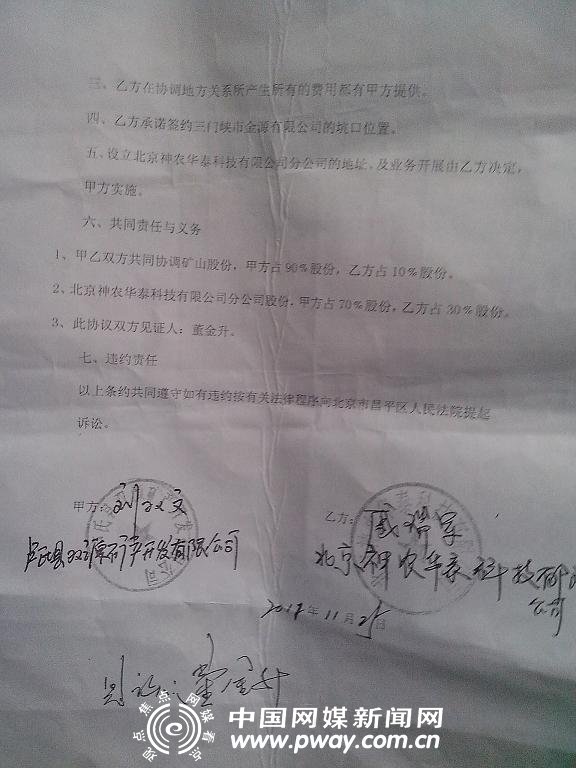 三、乙方在协调地方关系所产生所有的费用都有甲方提供。
四、乙方承诺签约三门峡市金源有限公司的坑口位置。
五、设立北京神农华泰科技有限公司分公司的地址，及业务开展由乙方决定，
甲方实施。
六、共同责任与义务
1、甲乙双方共同协调矿山股份，甲方占90%股份，乙方占10%股份。
2、北京神农华泰科技有限公司分公司股份，甲方占70%股份，乙方占30%股份。
3、此协议双方见证人：董金升。
七、违约责任
以上条约共同遵守如有违约按有关法律程序向北京市昌平区人民法院提起
诉讼。
甲方：刘双文
卢氏县双源矿产开发有限公司
乙方：
北京神农华泰科技有限
公司
年11月25日
见证：董金升
观点 焦点 网媒看点
中国网媒新闻网
www.pway.com.cn